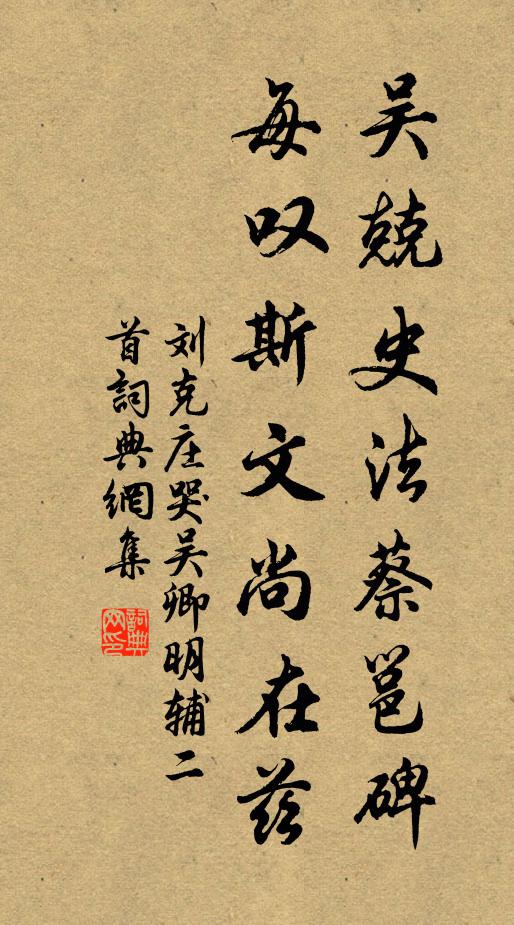 吴兢史法蔡邕碑
每叹斯文尚在兹
刘克庄哭吴卿明辅二
首詞典網集
詞典
网印